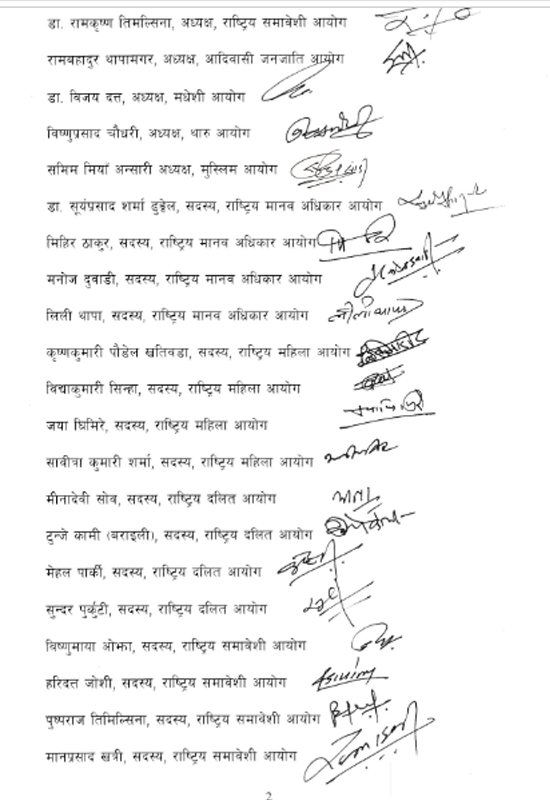 डा. रामकृष्ण तिमल्सिना, अध्यक्ष, राष्ट्रिय समावेशी आयोग
रामबहादुर थापामगर, अध्यक्ष, आदिवासी जनजाति आयोग
डा. बिजय दत्त, अध्यक्ष, मधेशी आयोग
विष्णुप्रसाद चौधरी, अध्यक्ष, थारु आयोग
समिम मियाँ अन्सारी अध्यक्ष, मुस्लिम आयोग
डा. सूर्यप्रसाद शर्मा ढुङ्गेल, सदस्य, राष्ट्रिय मानव अधिकार आयोग
मिहिर ठाकुर, सदस्य, राष्ट्रिय मानव अधिकार आयोग
मनोज दुवाडी, सदस्य, राष्ट्रिय मानव अधिकार आयोग
लिली थापा, सदस्य, राष्ट्रिय मानव अधिकार आयोग
कृष्णकुमारी पौडेल खतिवडा, सदस्य, राष्ट्रिय महिला आयोग
विद्याकुमारी सिन्हा, सदस्य, राष्ट्रिय महिला आयोग
जया घिमिरे, सदस्य, राष्ट्रिय महिला आयोग
सावीत्रा कुमारी शर्मा, सदस्य, राष्ट्रिय महिला आयोग
मीनादेवी सोव, सदस्य, राष्ट्रिय दलित आयोग
टुन्जे कामी (बराइली), सदस्य, राष्ट्रिय दलित आयोग
मेहल पार्की, सदस्य, राष्ट्रिय दलित आयोग
सुन्दर पुर्कुटी, सदस्य, राष्ट्रिय दलित आयोग
बिष्णुमाया ओझा, सदस्य, राष्ट्रिय समावेशी आयोग
हरिदत्त जोशी, सदस्य, राष्ट्रिय समावेशी आयोग
पुष्पराज तिमिल्सिना, सदस्य, राष्ट्रिय समावेशी आयोग
मानप्रसाद खत्री, सदस्य, राष्ट्रिय समावेशी आयोग
2